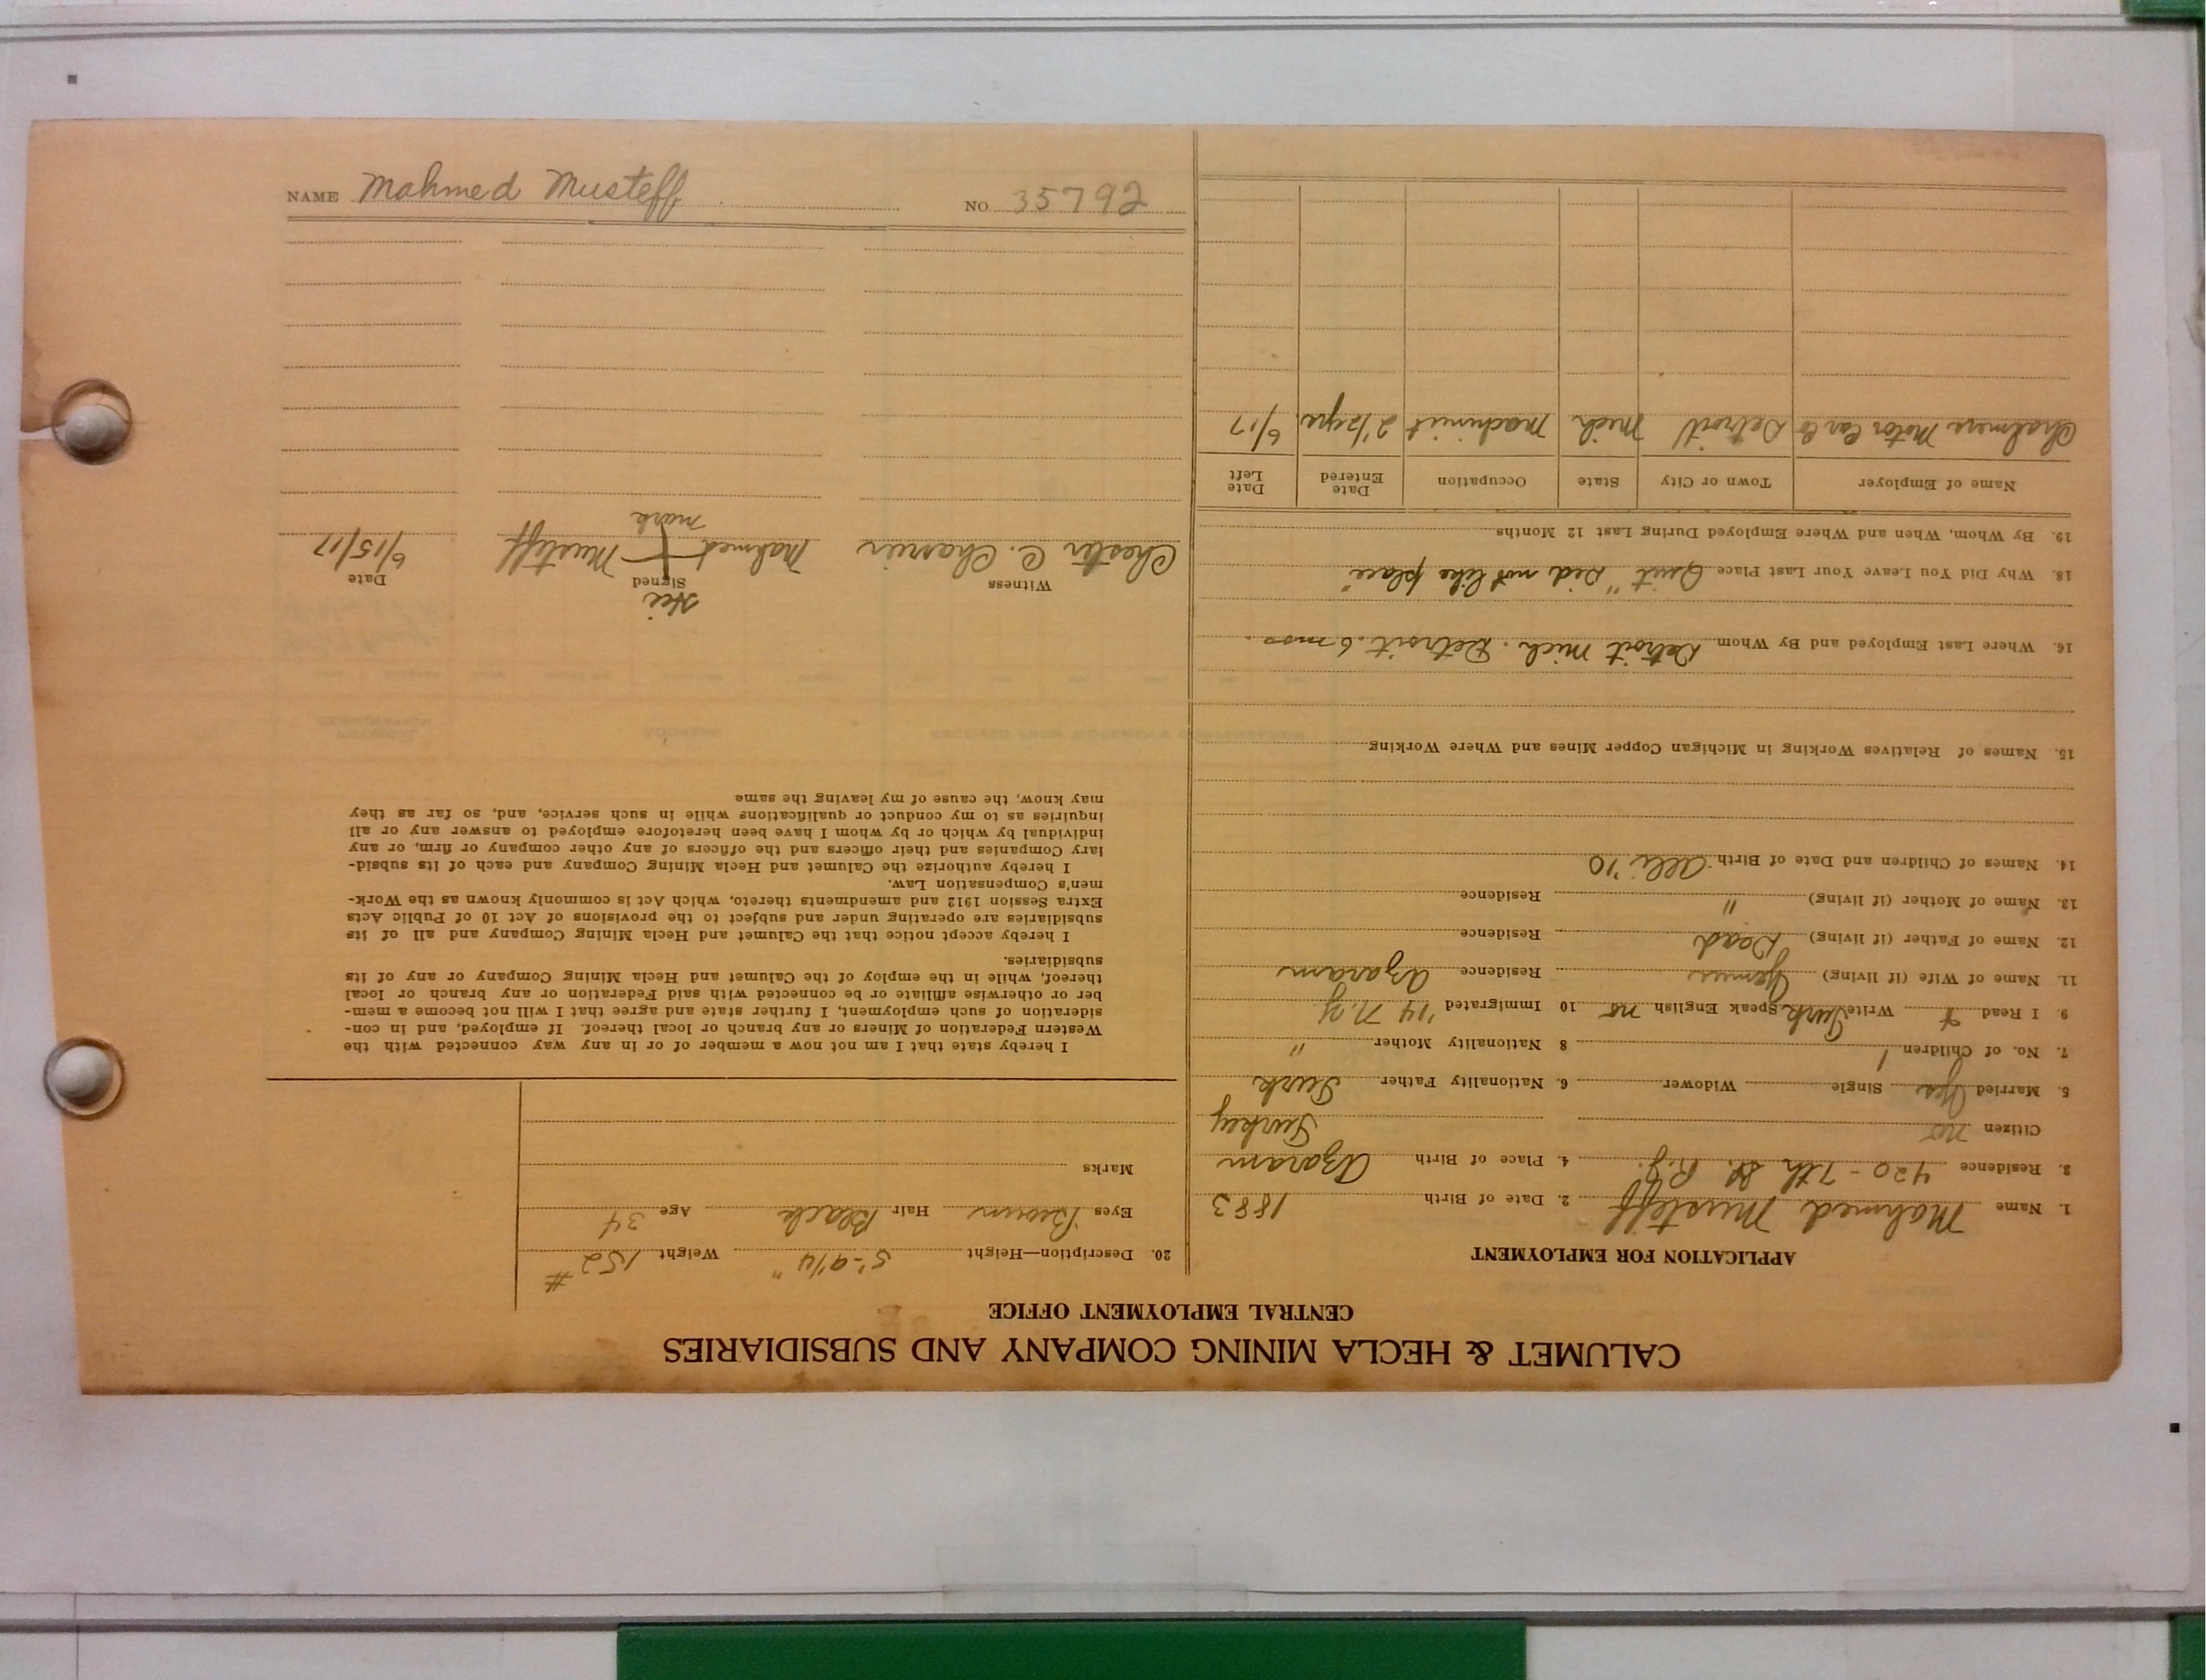 CALUMET & HECLA MINING COMPANY AND SUBSIDIARIES
CENTRAL EMPLOYMENT OFFICE
APPLICATION FOR EMPLOYMENT
1. Name Mahmed Musteff 2. Date of Birth 1883
3. Residence 420 - 7th St. R.J. 4. Place of Birth Azaram
Citizen no Turkey
5. Married Yes Single Widower 6. Nationality Father Turk
7. No. of Children 1 8 Nationality Mother "
9. I Read & Write Turk Speak English no 10 Immigrated '14 N.Y.
11. Name of Wife (if living) Residence Azaram
12. Name of Father (if living) Dead Residence
13. Name of Mother (if living) " Residence
14. Names of Children and Date of Birth Alli '10
15. Names of Relatives Working in Michigan Copper Mines and Where Working
16. Where Last Employed and By Whom Detroit Mich. Detroit. 6 mos.
18. Why Did You Leave Your Last Place Quit "Did not like place"
19. By Whom, When and Where Employed During Last 12 Months
Name of Employer Town or City State Occupation Date Entered Date Left
Chalmers Motor Car Co Detroit Mich Machinist 2 1/2 yrs. 6/17
20. Description—Height 5'-9 1/4" Weight 152 #
Eyes Brown Hair Black Age 34
Marks
I hereby state that I am not now a member of or in any way connected with the
Western Federation of Miners or any branch or local thereof. If employed, and in con-
sideration of such employment, I further state and agree that I will not become a mem-
ber or otherwise affiliate or be connected with said Federation or any branch or local
thereof, while in the employ of the Calumet and Hecla Mining Company or any of its
subsidiaries.
I hereby accept notice that the Calumet and Hecla Mining Company and all of its
subsidiaries are operating under and subject to the provisions of Act 10 of Public Acts
Extra Session 1912 and amendments thereto, which Act is commonly known as the Work-
men's Compensation Law.
I hereby authorize the Calumet and Hecla Mining Company and each of its subsid-
iary Companies and their officers and the officers of any other company or firm, or any
individual by which or by whom I have been heretofore employed to answer any or all
inquiries as to my conduct or qualifications while in such service, and, so far as they
may know, the cause of my leaving the same
His
Witness Signed Date
Chester C. Charrier Mahmed + Musteff 6/15/17
mark
NAME Mahmed Musteff NO. 35792